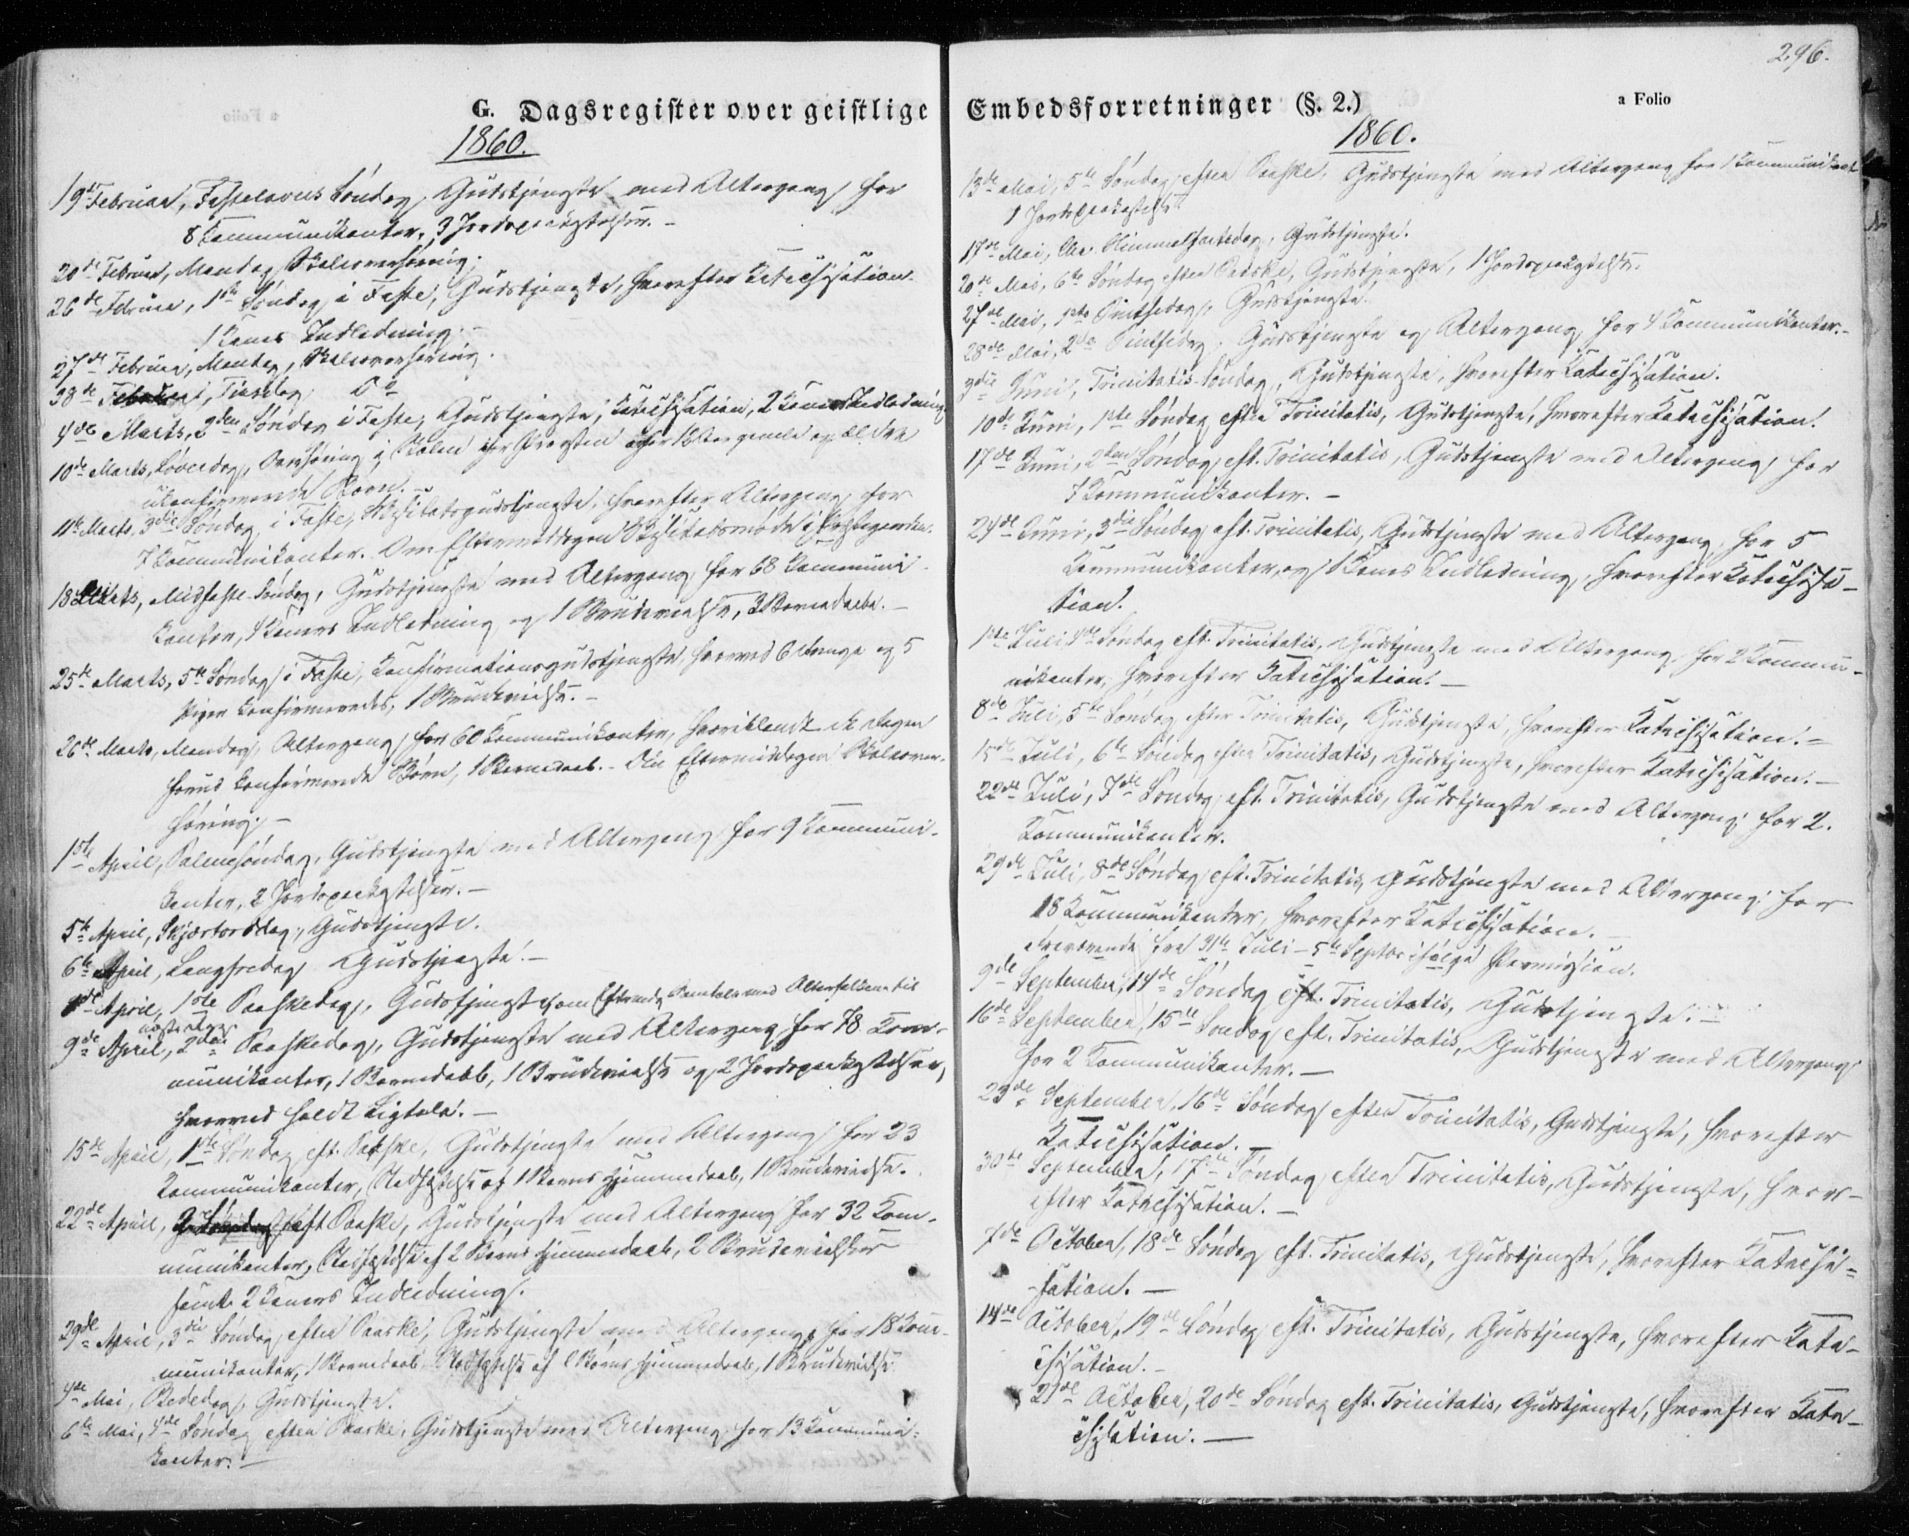 296.
G. Dagsregister over geistlige Embedsforretninger (§. 2.)
a Folio
1860.
19de Februar, Fastelavns Søndag, Gudstjeneste med Altergang for
8 Kommunikanter, 3 Jordspaakastelser. –
20de Februar, Mandag, Skoleoverhøring.
26de Februar, 1ste Søndag i Faste, Gudstjeneste, hvorefter Katechisation.
1 Kones Indledning. –
27de Februar, Mandag, Skoleoverhøring.
28de Februar, Tirsdag, Do
4de Marts, 2den Søndag i Faste, Gudstjeneste, Katechisation, 2 Koners Indledning.
10de Marts, Løverdag, Overhøring i Skolen
ukonfirmerede Børn. –
11te Marts, 3die Søndag i Faste, Visitatsgudstjeneste, hvorefter Altergang for
7 Kommunikanter. Om Eftermiddagen Visitatsmøde i Præstegaarden.
18de Marts, Midfaste Søndag, Gudstjeneste med Altergang for 68 Kommuni-
kanter, 4 Koners Indledning og 1 Brudevielse, 3 Barnedaabe. –
25de Marts, 5te Søndag i Faste, Konfirmationsgudstjeneste, hvorved 6 Drenge og 5
Piger konfirmeredes, 1 Brudevielse. –
26de Marts, Mandag, Altergang for 60 Kommunikanter, hvoriblandt de Dagen
forud konfirmerede Børn, 1 Barnedaab. – Om Eftermiddagen Skoleover-
høring. –
1ste April, Palmesøndag, Gudstjeneste med Altergang for 9 Kommuni-
kanter, 2 Jordspaakastelser. –
5te April, Skjærtorsdag, Gudstjeneste.
6te April, Langfredag Gudstjeneste. –
8de April, 1ste Paaskedag, Gudstjeneste, om Eftermdg Samtale med Altersfolkene til
næste Dag.
9de April, 2den Paaskedag, Gudstjeneste med Altergang for 78 Kom-
munikanter, 1 Barnedaab, 1 Brudevielse og 2 Jordspaakastelser,
hvorved holdt Ligtale. –
15de April, 1ste Søndag eft. Paaske, Gudstjeneste med Altergang for 23
Kommunikanter, Stadfæstelse af 1 Barns Hjemmedaab, 1 Brudevielse.
22de April, 2 Søndag eft Paaske, Gudstjeneste med Altergang for 32 Kom-
munikanter, Stadfæstelse af 2 Børns Hjemmedaab, 2 Brudevielser
samt 2 Koners Indledning.
29de April, 3die Søndag efter Paaske, Gudstjeneste med Altergang for 18 Kom-
munikanter, 1 Barnedaab, Stadfæstelse af 1 Barns Hjemmedaab, 1 Brudevielse.
4de Mai, Bededag, Gudstjeneste.
6te Mai, 4de Søndag efter Paaske, Gudstjeneste med Altergang for 13 Kommuni-
kanter. –
1860.
13de Mai, 5te Søndag efter Paaske, Gudstjeneste med Altergang for 1 Kommunikant
1 Jordspaakastelse.
17de Mai, Chr. Himmelfartsdag, Gudstjeneste.
20de Mai, 6te Søndag efter Paaske, Gudstjeneste, 1 Jordspaakastelse.
27de Mai, 1ste Pintsedag, Gudstjeneste.
28de Mai, 2den Pintsedag, Gudstjeneste og Altergang for 4 Kommunikanter. –
3die Juni, Trinitatis-Søndag, Gudstjeneste, hvorefter Katechisation.
10de Juni, 1ste Søndag efter Trinitatis, Gudstjeneste, hvorefter Katechisation.
17de Juni, 2den Søndag eft. Trinitatis, Gudstjeneste med Altergang for
7 Kommunikanter. –
24de Juni, 3die Søndag eft. Trinitatis, Gudstjeneste med Altergang for 5
Kommunikanter og 1 Kones Indledning, hvorefter Katechisa-
tion.
1ste Juli 4de Søndag eft. Trinitatis, Gudstjeneste med Altergang for 2 Kommu-
nikanter, hvorefter Katechisation. –
8de Juli, 5te Søndag efter Trinitatis, Gudstjeneste, hvorefter Katechisation. –
15de Juli, 6te Søndag efter Trinitatis, Gudstjeneste, hvorefter Katechisation. –
22de Juli, 7de Søndag eft. Trinitatis, Gudstjeneste med Altergang for 2.
Kommunikanter.
29de Juli, 8de Søndag eft. Trinitatis, Gudstjeneste med Altergang for
18 Kommunikanter, hvorefter Katechisation. –
Fraværende fra 31te Juli – 5te Septbr ifølge Permission.
9de September, 14de Søndag eft. Trinitatis, Gudstjeneste. –
16de September, 15de Søndag eft. Trinitatis, Gudstjeneste med Altergang
for 2 Kommunikanter. –
23de September, 16de Søndag efter Trinitatis, Gudstjeneste, hvorefter
Katechisation. –
30te September, 17de Søndag efter Trinitatis, Gudstjeneste, hvor-
efter Katechisation. –
7de October, 18de Søndag eft. Trinitatis, Gudstjeneste, hvorefter Katechi-
sation. –
14de October, 19de Søndag eft. Trinitatis, Gudstjeneste, hvorefter Kate-
chisation. –
21de October, 20de Søndag eft. Trinitatis, Gudstjeneste, hvorefter Kate-
chisation. –